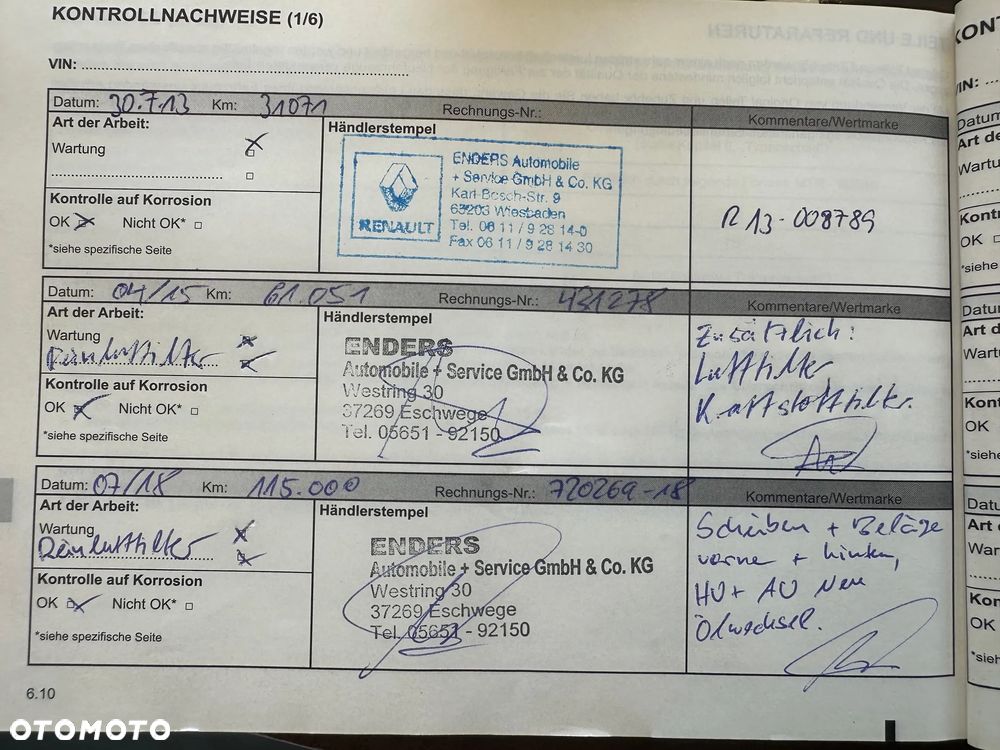 KONTROLLNACHWEISE (1/6)
VIN:
Datum: 30.7.13 Km: 31071 Rechnungs-Nr.: Kommentare/Wertmarke
Art der Arbeit:
Wartung
Kontrolle auf Korrosion
OK Nicht OK*
*siehe spezifische Seite
Händlerstempel
RENAULT
ENDERS Automobile
+ Service GmbH & Co. KG
Karl-Bosch-Str. 9
65203 Wiesbaden
Tel. 06 11 / 9 28 14-0
Fax 06 11 / 9 28 14 30
R 13-008789
Datum: 04/15 Km: 61.051 Rechnungs-Nr.: 431278 Kommentare/Wertmarke
Art der Arbeit:
Wartung
Reinluftfilter
Kontrolle auf Korrosion
OK Nicht OK*
*siehe spezifische Seite
Händlerstempel
ENDERS
Automobile + Service GmbH & Co. KG
Westring 30
37269 Eschwege
Tel. 05651 - 92150
Zusätzlich:
Luftfilter
Kraftstofffilter.
Datum: 07/18 Km: 115.000 Rechnungs-Nr.: 720269-18 Kommentare/Wertmarke
Art der Arbeit:
Wartung
Reinluftfilter
Kontrolle auf Korrosion
OK Nicht OK*
*siehe spezifische Seite
Händlerstempel
ENDERS
Automobile + Service GmbH & Co. KG
Westring 30
37269 Eschwege
Tel. 05651 - 92150
Scheiben + Beläge
vorne + hinten,
HU + AU Neu
Ölwechsel.
6.10
OTOMOTO